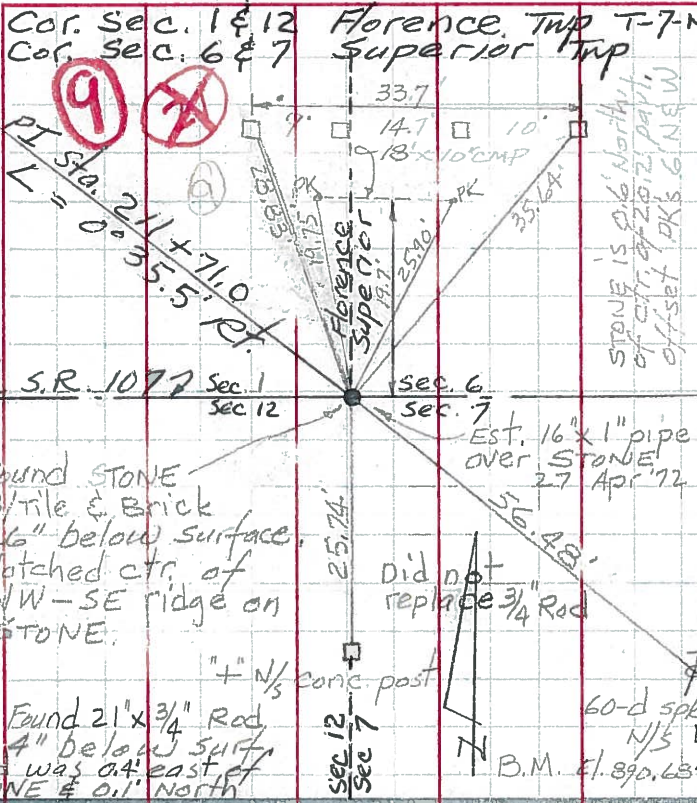 Cor. Sec. 1 & 12 Florence Twp T-7-N
Cor. Sec. 6 & 7 Superior Twp
9
33.7'
7' 14.7' 10'
18' x 10" CMP
PK
PK
28.83'
19.75'
25.90'
35.64'
19.7'
Florence
Superior
PI Sta. 211 + 71.0
L = 0° 35.5' Rt.
STONE is 0.6' North
of ctr. of 20.2' pav't.
offset PKs 6' N E W
S.R. 107
Sec. 1
Sec 12
Sec. 6
Sec. 7
Est. 16" x 1" pipe
over STONE
27 Apr '72
ound STONE
/Tile & Brick
6" below surface.
otched ctr. of
W-SE ridge on
STONE.
25.74'
56.48'
Did not
replace 3/4" Rod
"+" N/s conc. post
Found 21" x 3/4" Rod
4" below surf.
was 0.4' east of
NE & 0.1' North
Sec 12
Sec 7
N
60-d
N/S
B.M. El. 890.68